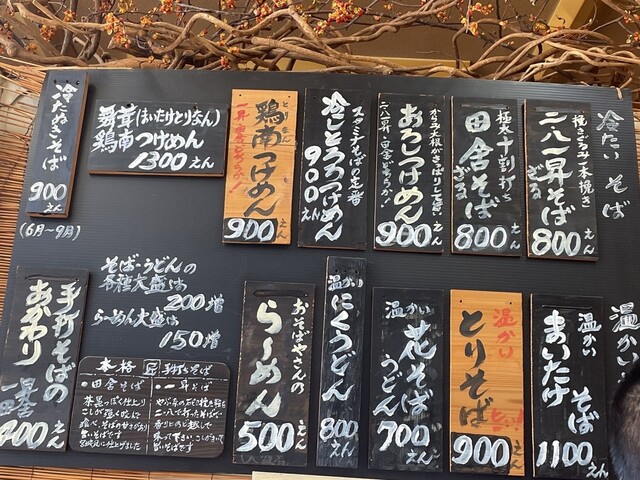 冷たい そば
挽きぐるみ 一本挽き
二八一昇そば
ざる
800えん
極太十割打ち
田舎そば
ざる
800えん
からみ大根がさっぱりして旨い
おろしつけめん
二八一昇・田舎どちらか!
900えん
スタミナそばの定番
冷しとろろつけめん
900えん
鶏南つけめん
とりなん
900えん
舞茸(まいたけとりなん)
鶏南つけめん
1300えん
冷たぬきそば
900えん
(6月〜9月)
温かい
温かい
まいたけ
そば
1100えん
温かい
とりそば
900えん
温かい
花そば
うどん
700えん
温かい
にくうどん
800えん
おそばやさんの
らーめん
500えん
そば・うどんの
各種大盛は
200増
らーめん大盛は
150増
本格 手打ちそば
・田舎そば
・一昇そば
手打そばの
おかわり
一昇
田舎
400えん